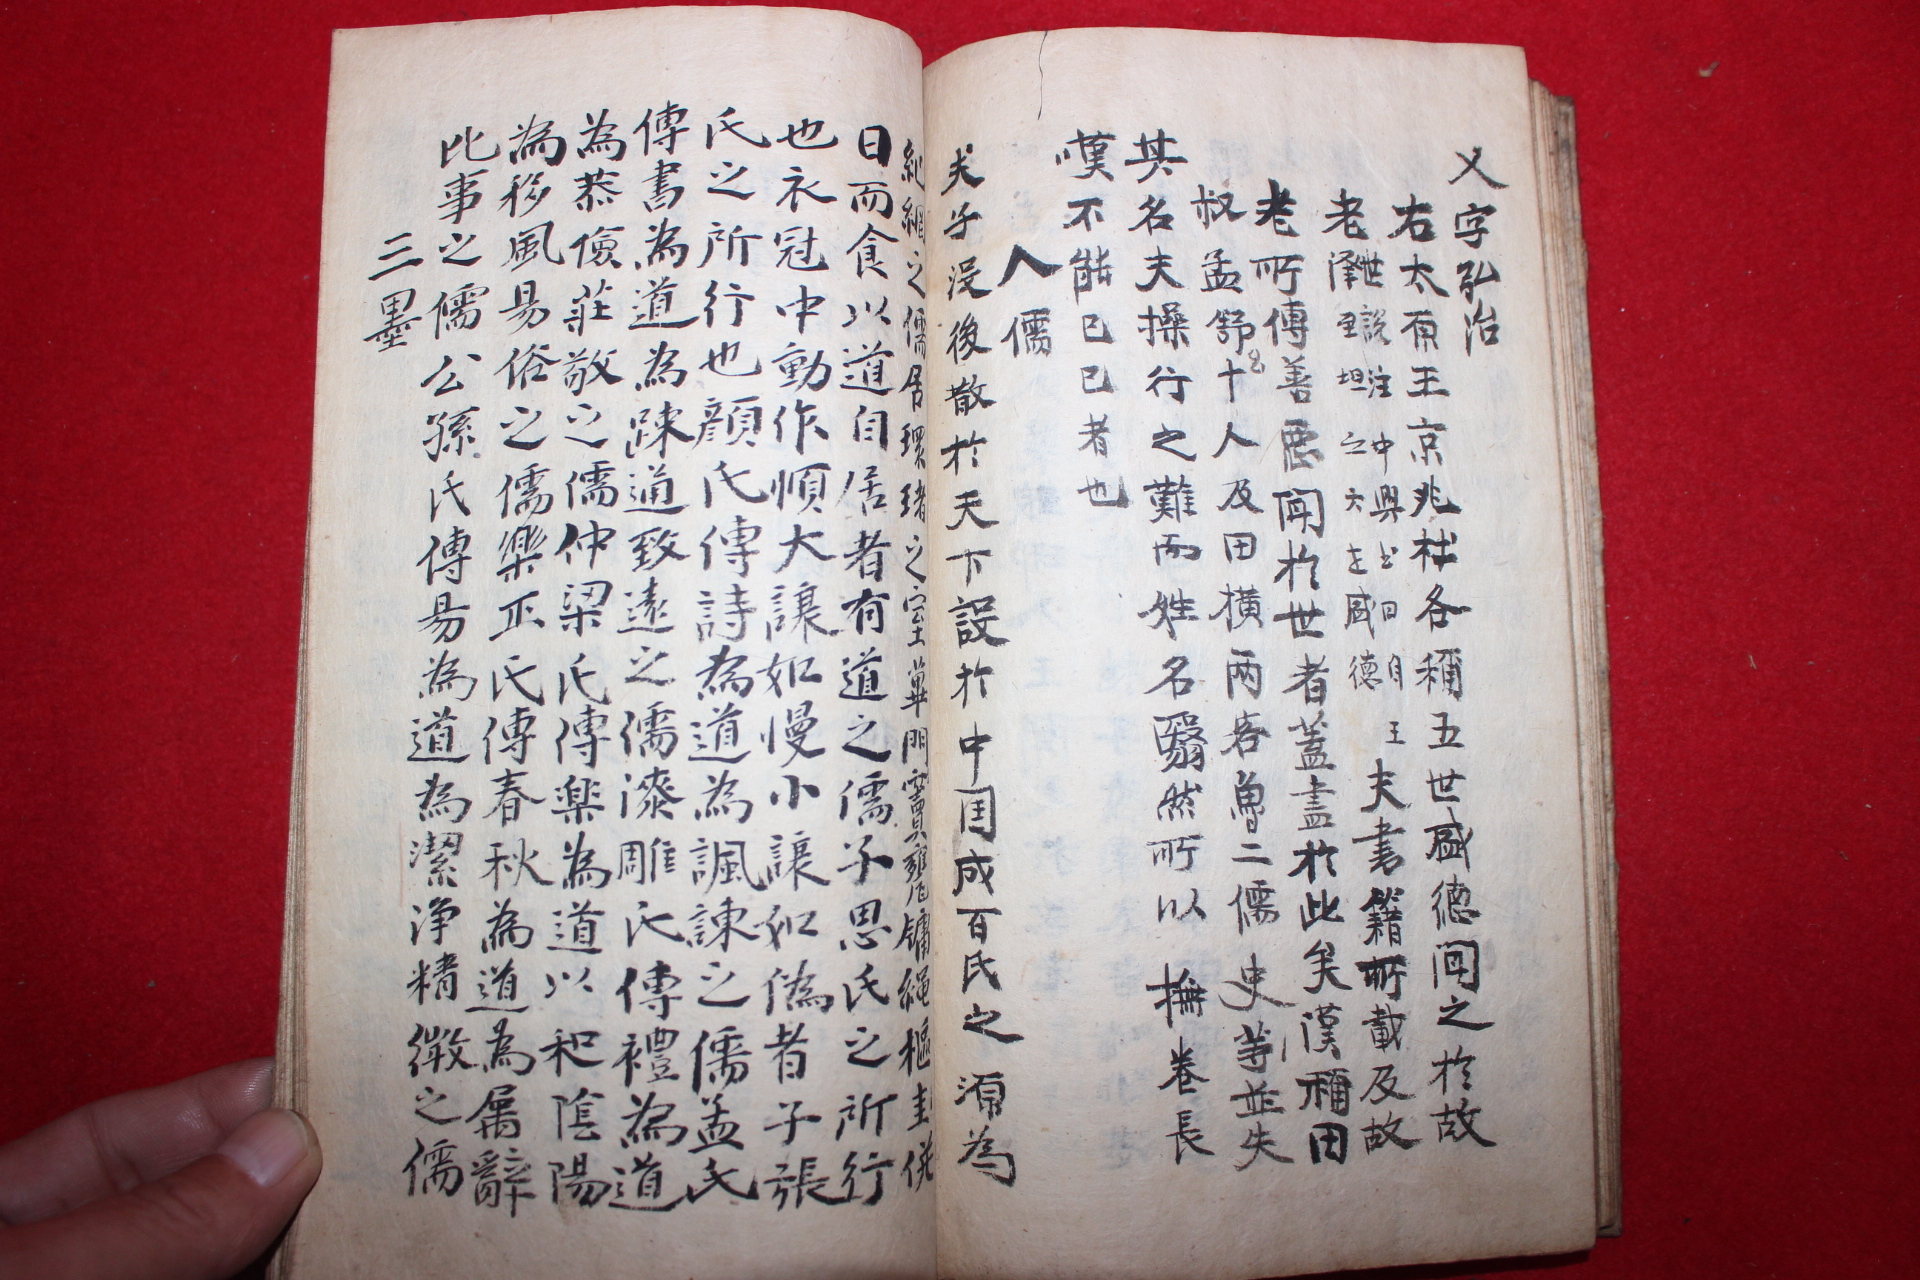 乂字弘治
右太原王京兆杜各稱五世盛德聞之於故
老 世說注中興書曰自王
澤至坦之六世盛德
夫書籍所載及故
老所傳善惡聞於世者蓋盡於此矣漢稱田
叔孟舒等十人及田橫兩客魯二儒史等並失
其名夫操行之難而姓名翳然所以撫卷長
嘆不能已已者也
八儒
夫子沒後散於天下設於中国成百氏之源為
紀綱之儒居環堵之室蓽門竇雍牖繩樞圭倂
日而食以道自居者有道之儒子思氏之所行
也衣冠中動作順大讓如慢小讓如偽者子張
氏之所行也顏氏傳詩為道為諷諫之儒孟氏
傳書為道為踈通致遠之儒漆雕氏傳禮為道
為恭儉莊敬之儒仲梁氏傳樂為道以和陰陽
為移風易俗之儒樂正氏傳春秋為道為屬辭
比事之儒公孫氏傳易為道為潔淨精微之儒
三墨